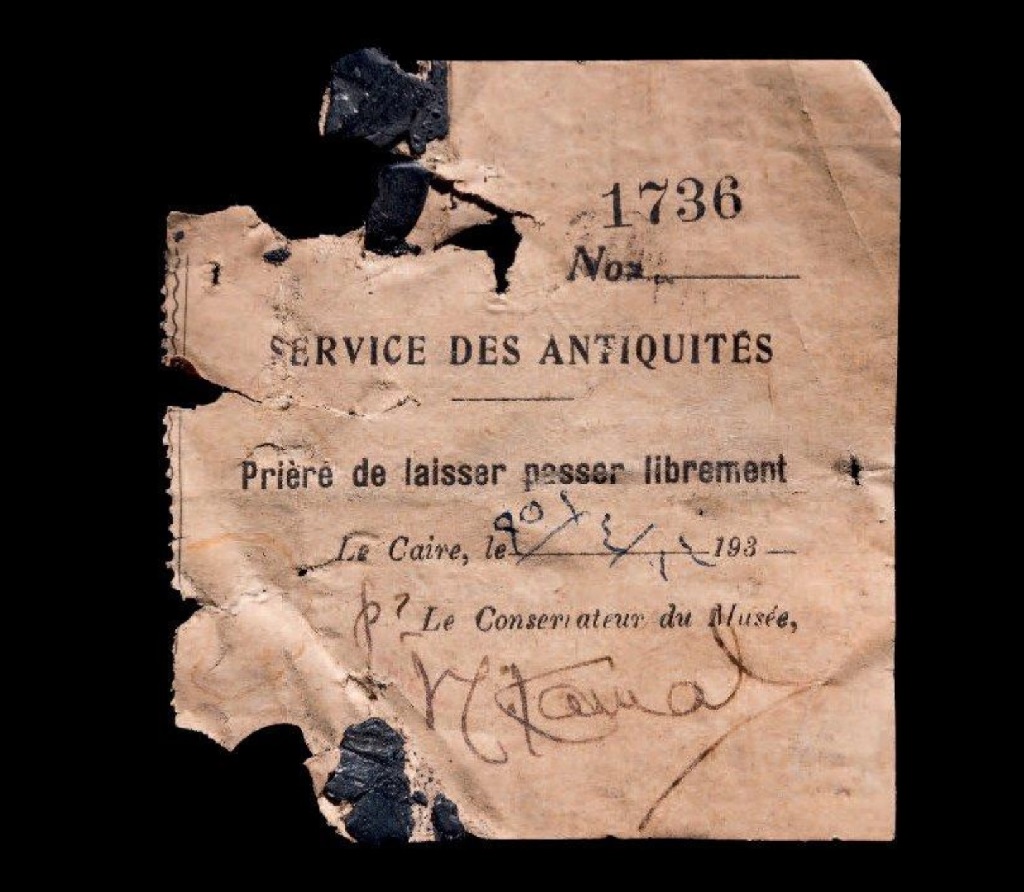 1736
Nos
SERVICE DES ANTIQUITÉS
Prière de laisser passer librement
Le Caire, le 193
Le Conservateur du Musée,
M Kamal